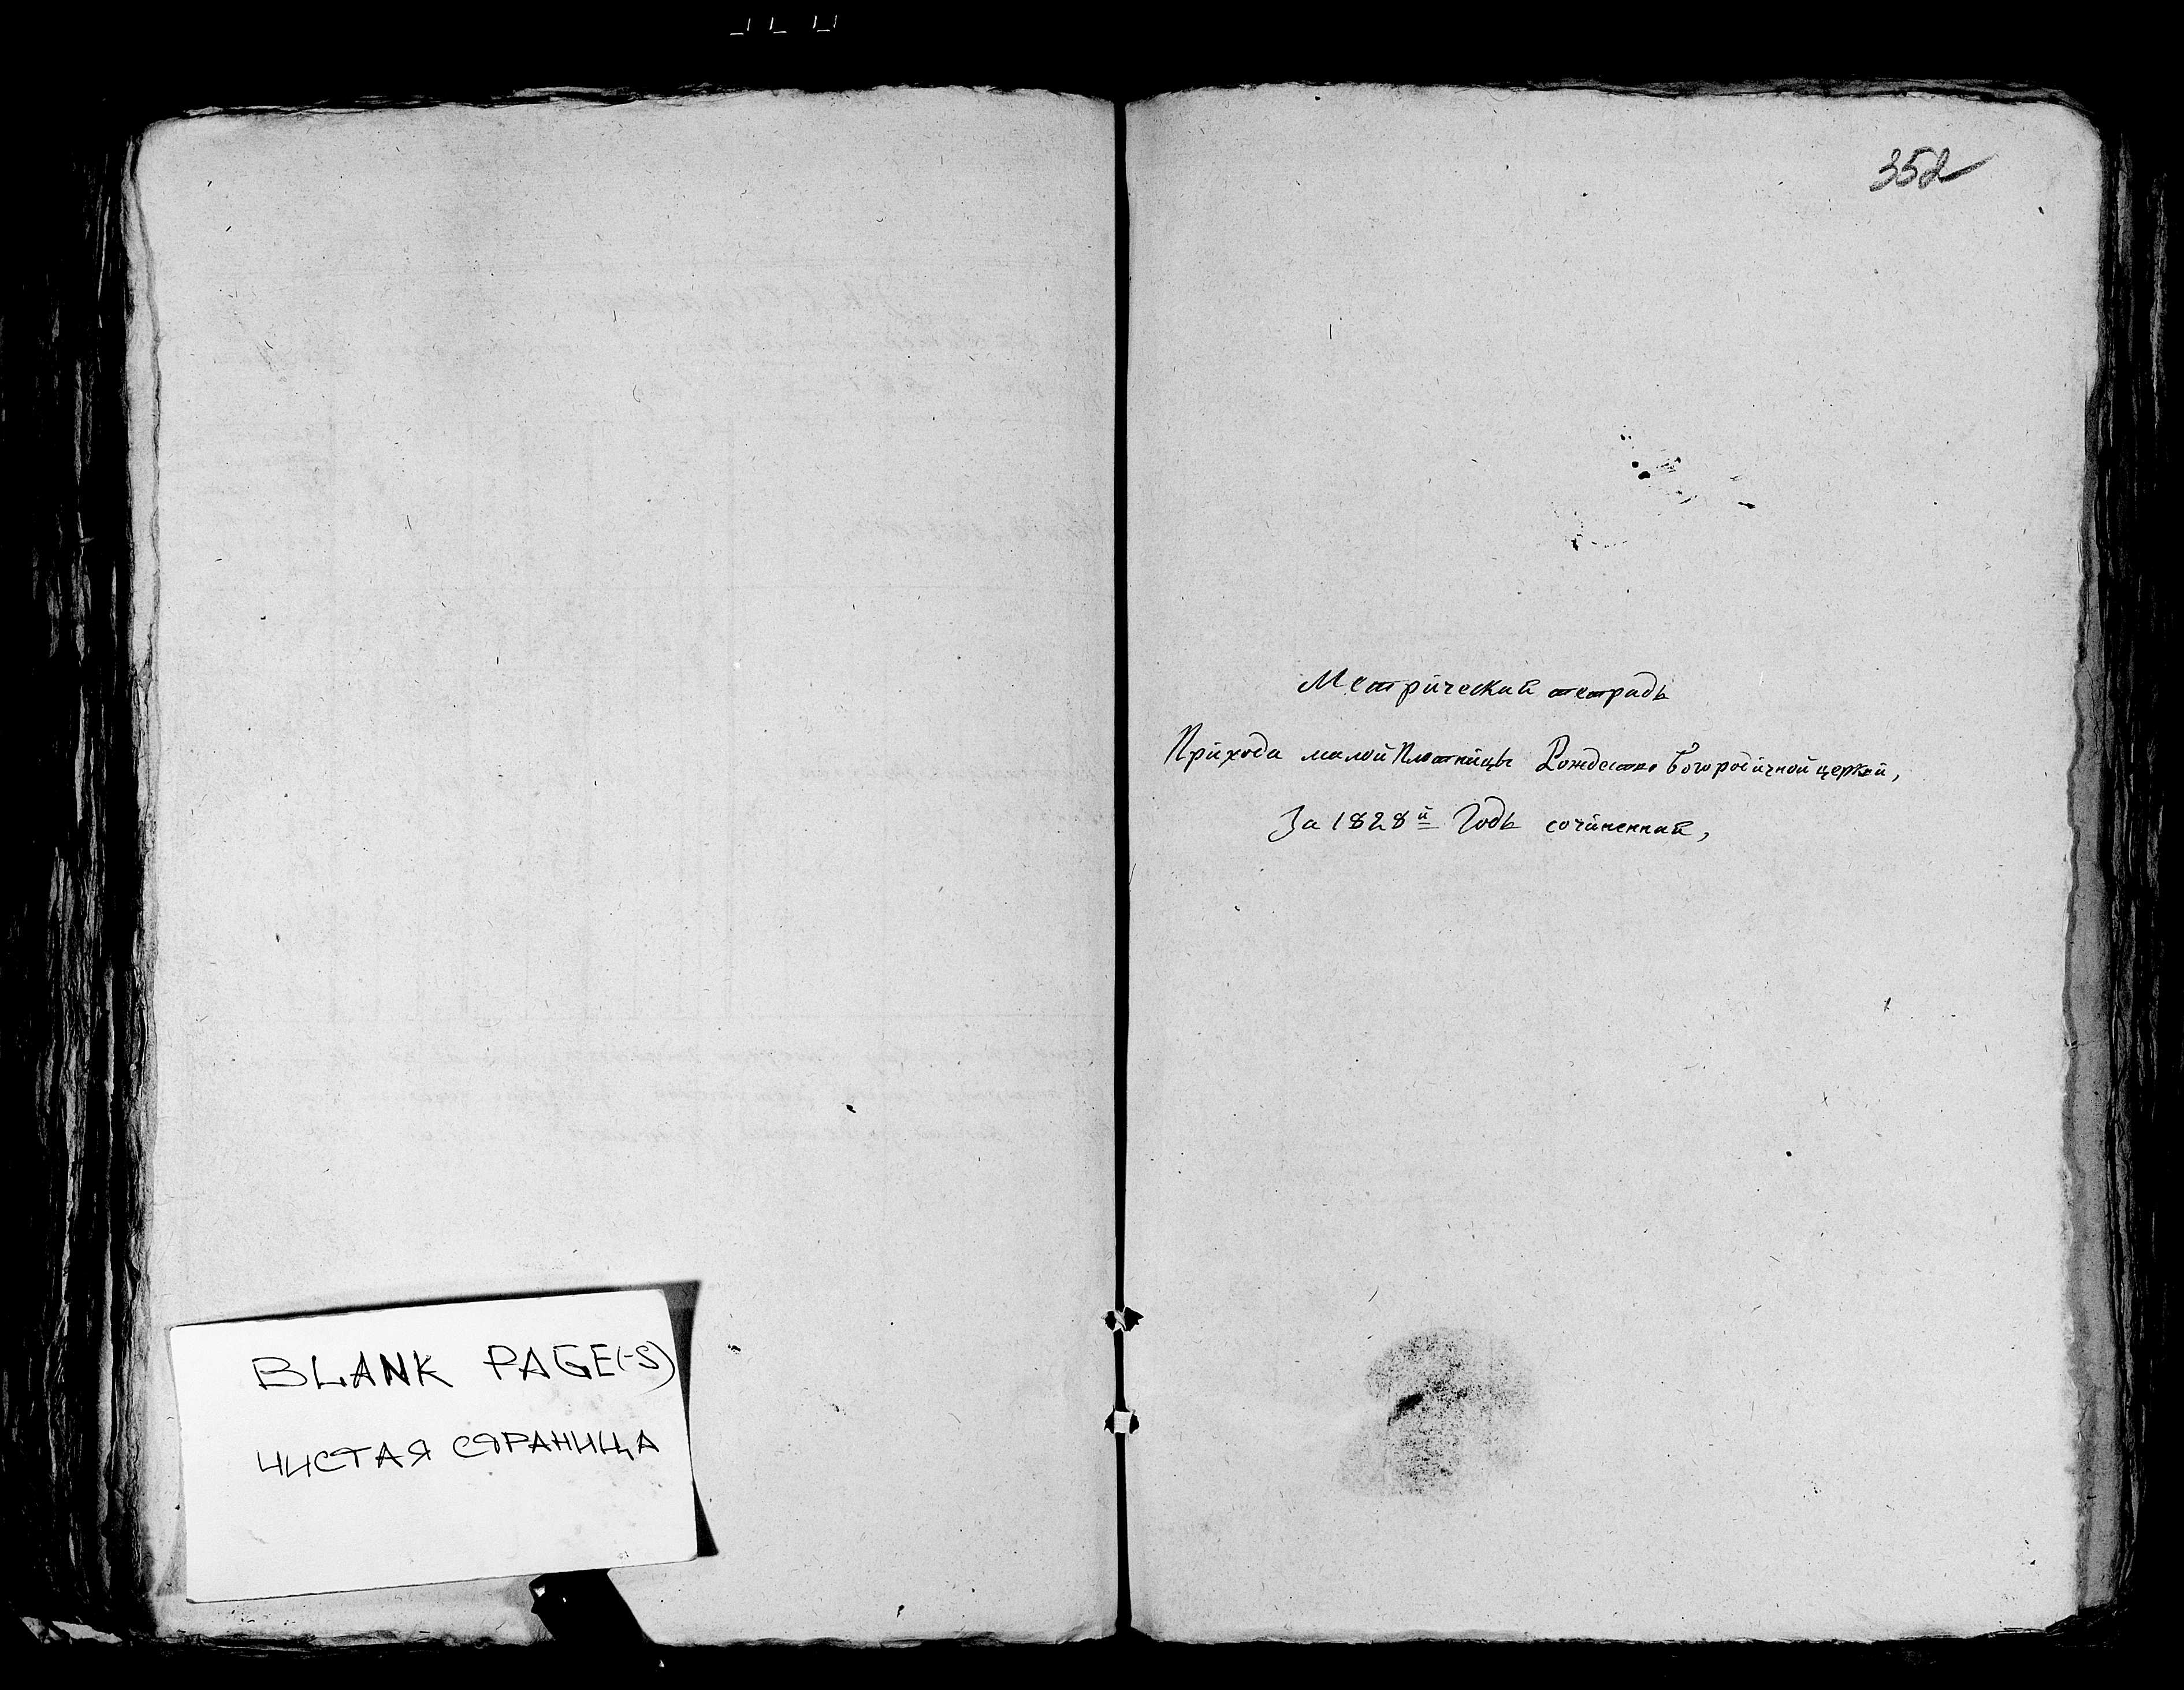 BLANK PAGE(-S)
ЧИСТАЯ СТРАНИЦА
352
Метрическая тетрадь
Прихода малой Плотницы Рождество Богородичной церкви,
За 1828й Годъ сочиненная,